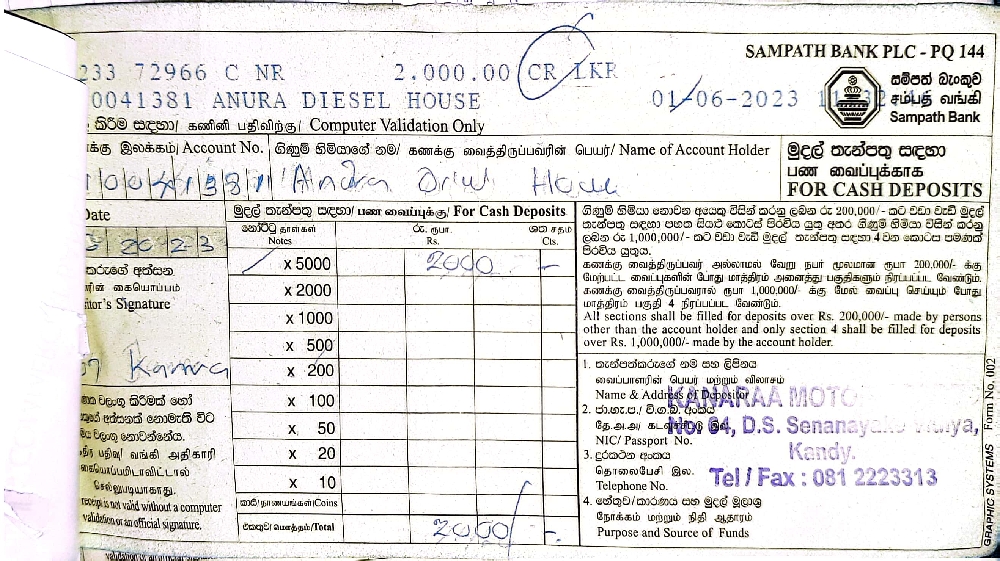 SAMPATH BANK PLC - PQ 144
233 72966 C NR 2,000.00 CR LKR
0041381 ANURA DIESEL HOUSE 01-06-2023
සම්පත් බැංකුව
சம்பத் வங்கி
Sampath Bank
කිරීම සඳහා/ கணினி பதிவிற்கு/ Computer Validation Only
க்கு இலக்கம்/ Account No. ගිණුම් හිමියාගේ නම/ கணக்கு வைத்திருப்பவரின் பெயர்/ Name of Account Holder
1004138111 Anura House
මුදල් තැන්පතු සඳහා
பண வைப்புக்காக
FOR CASH DEPOSITS
Date
2023
කරුගේ අත්සන
ரின் கையொப்பம்
itor's Signature
Kanna
වලංගු කිරීමක් හෝ
අත්සනක් නොමැති විට
වලංගු නොවන්නේය.
பதிவு/ வங்கி அதிகாரி
கையொப்பமிடாவிட்டால்
செல்லுபடியாகாது.
receipt is not valid without a computer
validation or an official signature.
මුදල් තැන්පතු සඳහා/ பண வைப்புக்கு/ For Cash Deposits
නෝට්ටු தாள்கள் රු. ரூபா. ශත சதம்
Notes Rs. Cts.
x 5000 2000 -
x 2000
x 1000
x 500
x 200
x 100
x 50
x 20
x 10
කාසි/நாணயங்கள்/Coins
එකතුව/மொத்தம்/Total 2000/-
ගිණුම් හිමියා නොවන අයෙකු විසින් කරනු ලබන රු 200,000/- කට වඩා වැඩි මුදල්
තැන්පතු සඳහා පහත සියළු කොටස් පිරවිය යුතු අතර ගිණුම් හිමියා විසින් කරනු
ලබන රු 1,000,000/- කට වඩා වැඩි මුදල් තැන්පතු සඳහා 4 වන කොටස පමණක්
පිරවිය යුතුය.
கணக்கு வைத்திருப்பவர் அல்லாமல் வேறு நபர் மூலமான ரூபா 200,000/- க்கு
மேற்பட்ட வைப்புகளின் போது மாத்திரம் அனைத்து பகுதிகளும் நிரப்பப்பட வேண்டும்.
கணக்கு வைத்திருப்பவரால் ரூபா 1,000,000/- க்கு மேல் வைப்பு செய்யும் போது
மாத்திரம் பகுதி 4 நிரப்பப்பட வேண்டும்.
All sections shall be filled for deposits over Rs. 200,000/- made by persons
other than the account holder and only section 4 shall be filled for deposits
over Rs. 1,000,000/- made by the account holder.
1. තැන්පත්කරුගේ නම සහ ලිපිනය
வைப்பாளரின் பெயர் மற்றும் விலாசம்
Name & Address of Depositor
KANARAA MOTO
2. ජා.හැ.ප./ වි.ග.බ. අංකය
தே.அ.அ/ கடவுச்சீட்டு இல.
No. 64, D.S. Senanayake
NIC/ Passport No.
Kandy.
3. දුරකථන අංකය
தொலைபேசி இல.
Telephone No.
Tel / Fax : 081 2223313
4. හේතුව/කාරණය සහ මුදල් මූලාශ්‍ර
நோக்கம் மற்றும் நிதி ஆதாரம்
Purpose and Source of Funds
GRAPHIC SYSTEMS Form No. 002